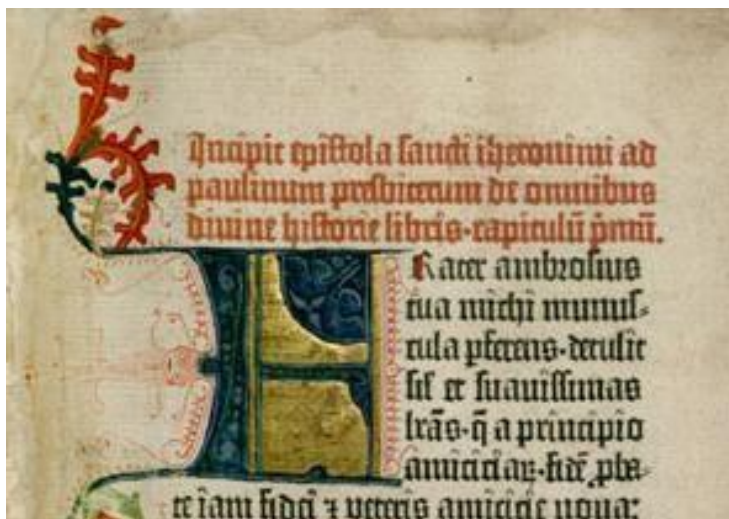 Incipit epistola sancti iheronimi ad
paulinum presbiterum de omnibus
divine historie libris·capitulū p̄mū.
FRater ambrosius
tua michi munus-
cula ꝑferens·detulit
sil̄ et suavissimas
lr̄as·q̄ a principio
amiciciaꝝ·fidē ꝓba-
te iam fidei ⁊ veteris amicicie nova: